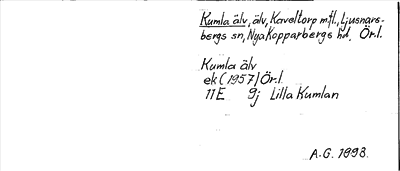 Kumla älv, älv, Kaveltorp m.fl., Ljusnars-
bergs sn, Nya Kopparbergs hd, Ör.l.
Kumla älv
ek (1957) Ör.l.
11E 9j Lilla Kumlan
A.G. 1993.